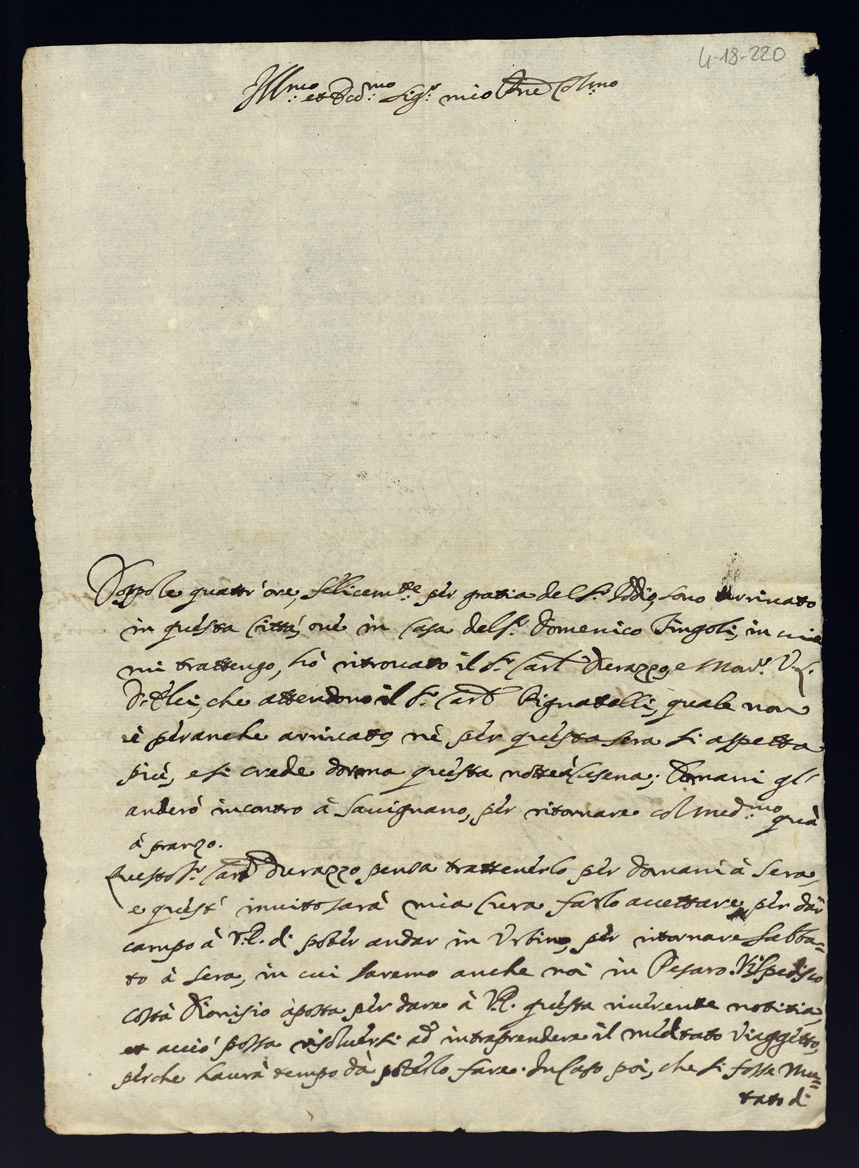 4-18-220
Ill:mo et Rev:mo Sig:r mio P.ne Col:mo
Doppo le quattr'ore, felicem.te per gratia del S.r Iddio, sono arrivato
in questa Città, ove in Casa del S.r Domenico Tingoli, in cui
mi trattengo, hò ritrovato il S.r Card. Durazzo, e Mon.r
D'Elci, che attendono il S.r Card. Pignatelli, quale non
è per anche arrivato, nè per questa sera si aspetta
più, e si crede dorma questa notte à Cesena; Domani gl'
anderò incontro à Savignano, per ritornare col med:mo quà
à pranzo.
Questo S.r Card Durazzo pensa trattenerlo per domani à sera,
e quest' invito sarà mia cura farlo accettare, per dar
campo à V.E. di poter andar in Urbino, per ritornare Sabba=
to à sera, in cui saremo anche noi in Pesaro.
costà Dionisio àposta per dare à V.E. questa riverente notitia,
et acciò possa risolversi ad intraprendere il meditato viaggetto,
perche haurà tempo dà poterlo fare. In Caso poi, che si fosse Mu=
tato di